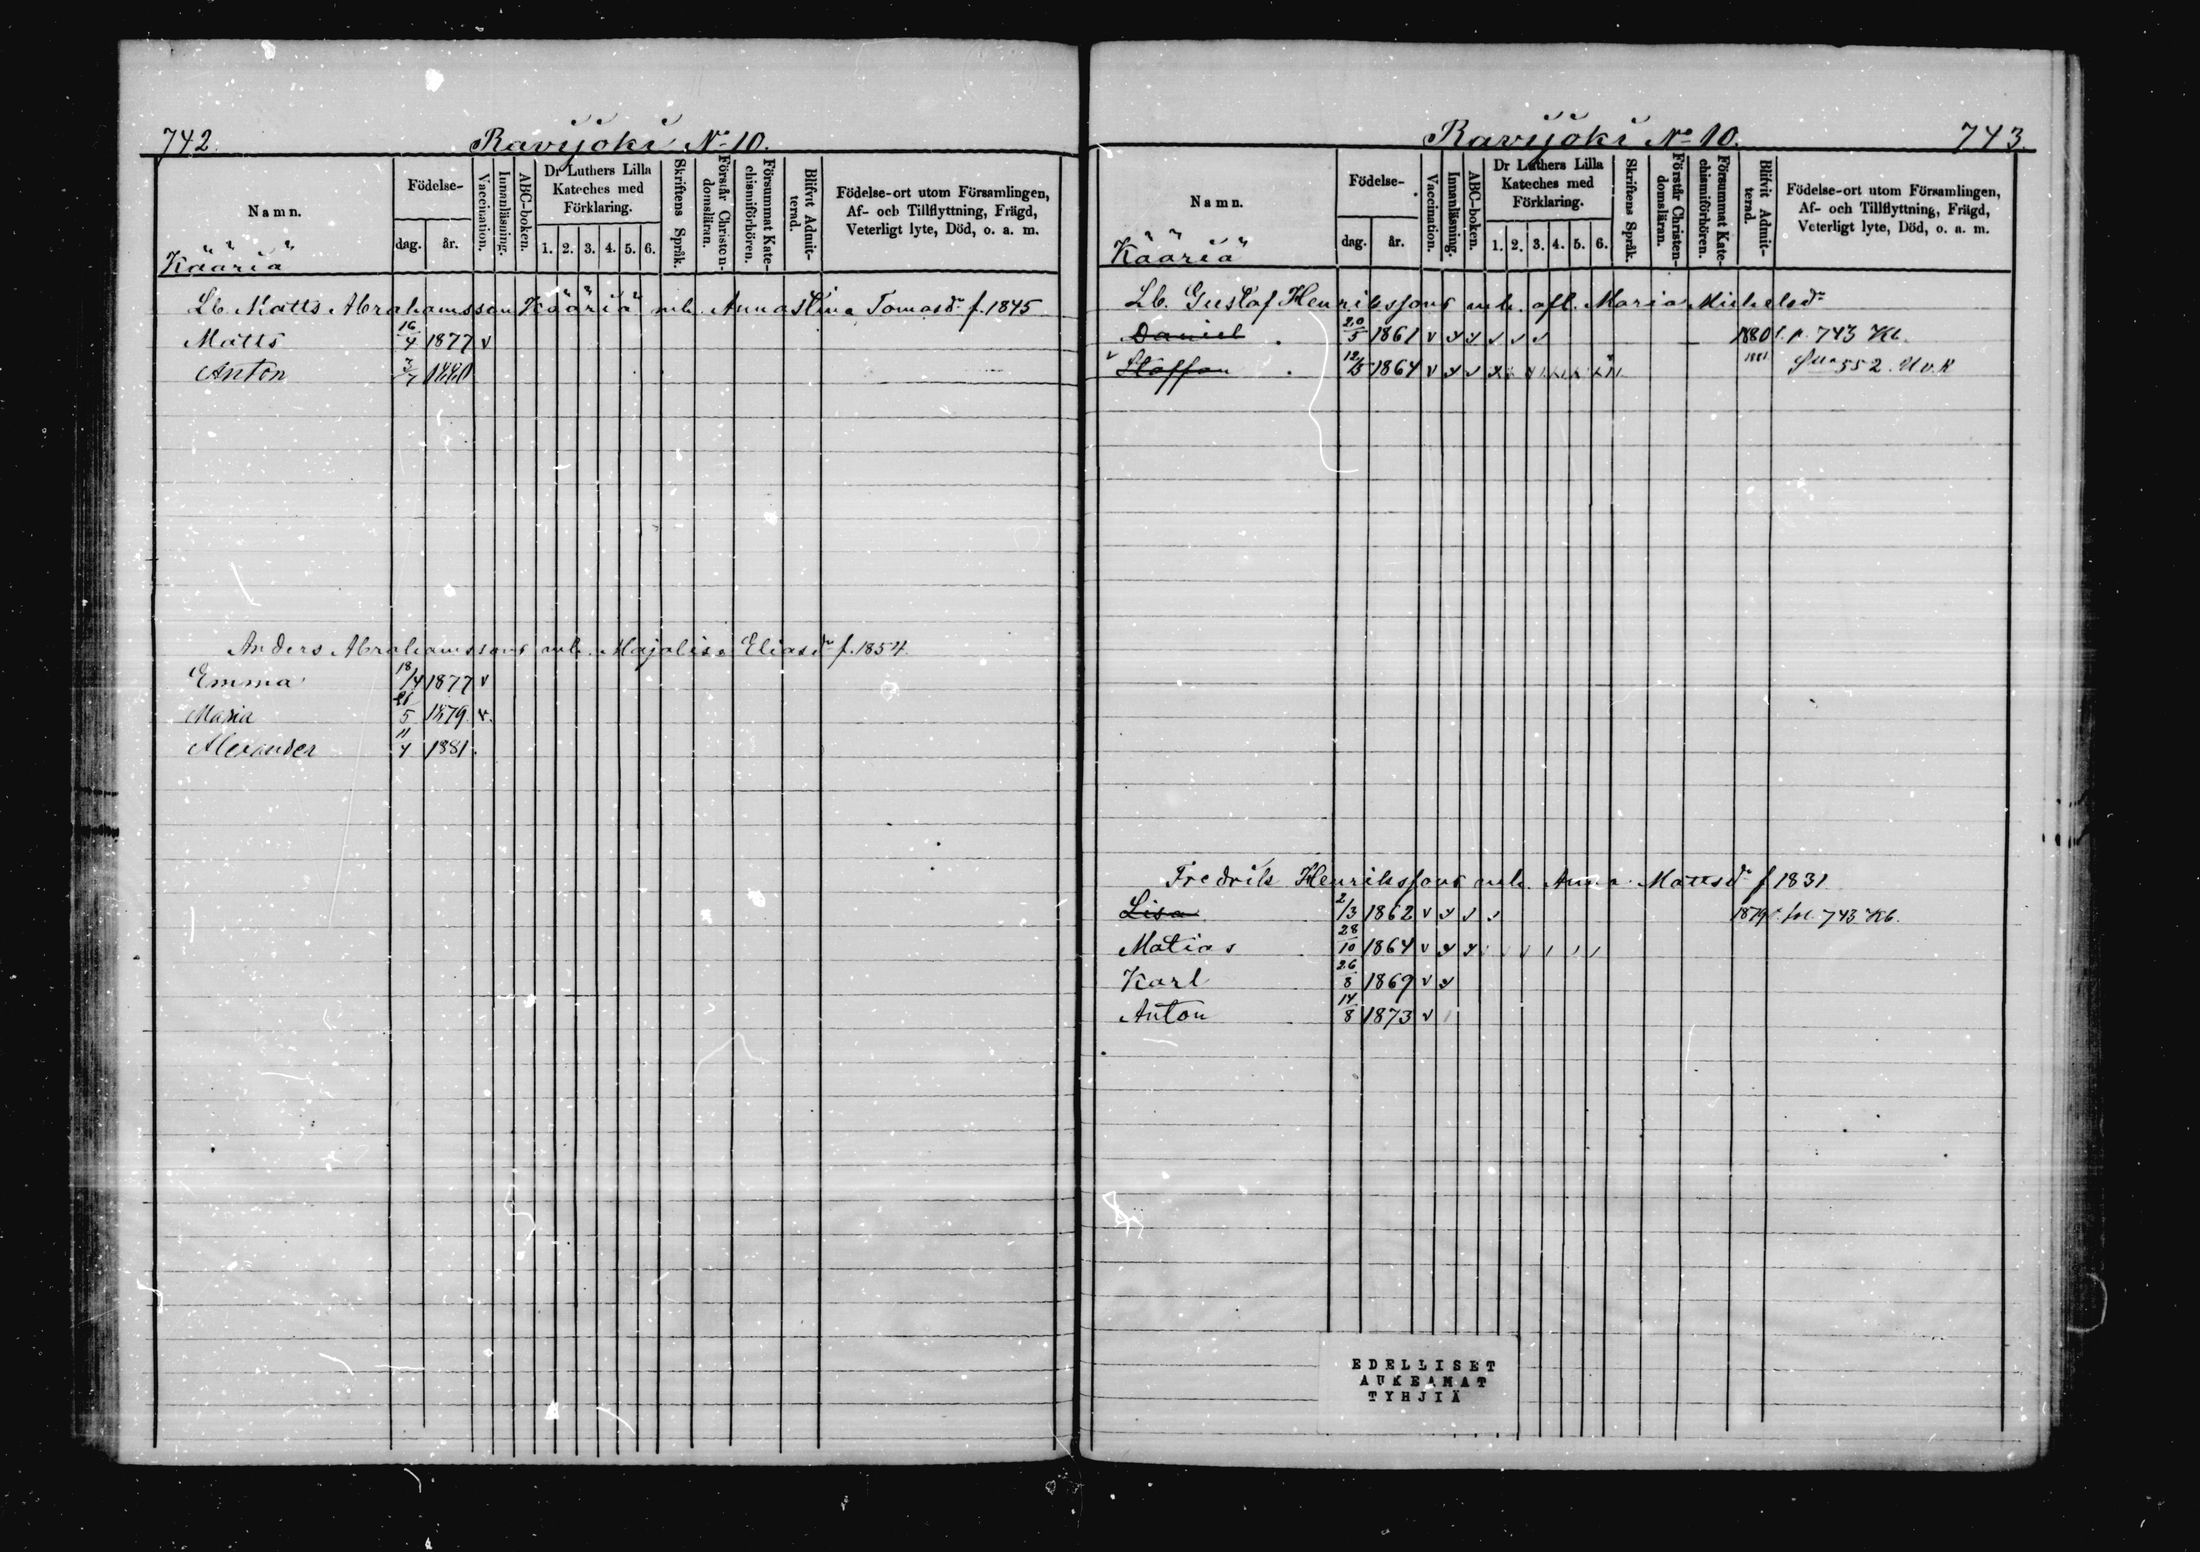 742.
Ravijoki No 10.
Namn.
Födelse-
dag.
år.
Vaccination.
Innanläsning.
ABC-boken.
Dr Luthers Lilla
Kateches med
Förklaring.
1. 2. 3. 4. 5. 6.
Skriftens Språk.
Förstår Christen-
domsläran.
Försummat Kate-
chismiförhören.
Blifvit Admit-
terad.
Födelse-ort utom Församlingen,
Af- och Tillflyttning, Frägd,
Veterligt lyte, Död, o. a. m.
Kääriä
Lb. Matts Abrahamsson Kääriä mh. Annastina Tomasdr f. 1845
Matts 16/4 1877 v
Anton 3/7 1880
Anders Abrahamssons mh. Majalisa Eliasdr f. 1854.
Emma 18/4 1877 v
Maria 21/5 1879 v.
Alexander 11/4 1881.
Ravijoki No 10.
743.
Namn.
Födelse-
dag.
år.
Vaccination.
Innanläsning.
ABC-boken.
Dr Luthers Lilla
Kateches med
Förklaring.
1. 2. 3. 4. 5. 6.
Skriftens Språk.
Förstår Christen-
domsläran.
Försummat Kate-
chismiförhören.
Blifvit Admit-
terad.
Födelse-ort utom Församlingen,
Af- och Tillflyttning, Frägd,
Veterligt lyte, Död, o. a. m.
Kääriä
Lb. Gustaf Henrikssons mh. afl. Maria Michelsdr
Daniel 20/5 1861 v 1880 p. 743 Kb.
Staffan 1864 v 1881 552.
Fredrik Henrikssons mh. Anna Mattsdr f 1831
Lisa 2/3 1862 v 1879 fol. 743 Kb.
Matias 28/10 1864 v
Karl 26/8 1869 v
Anton 14/8 1873 v
EDELLISET
AUKEAMAT
TYHJIÄ